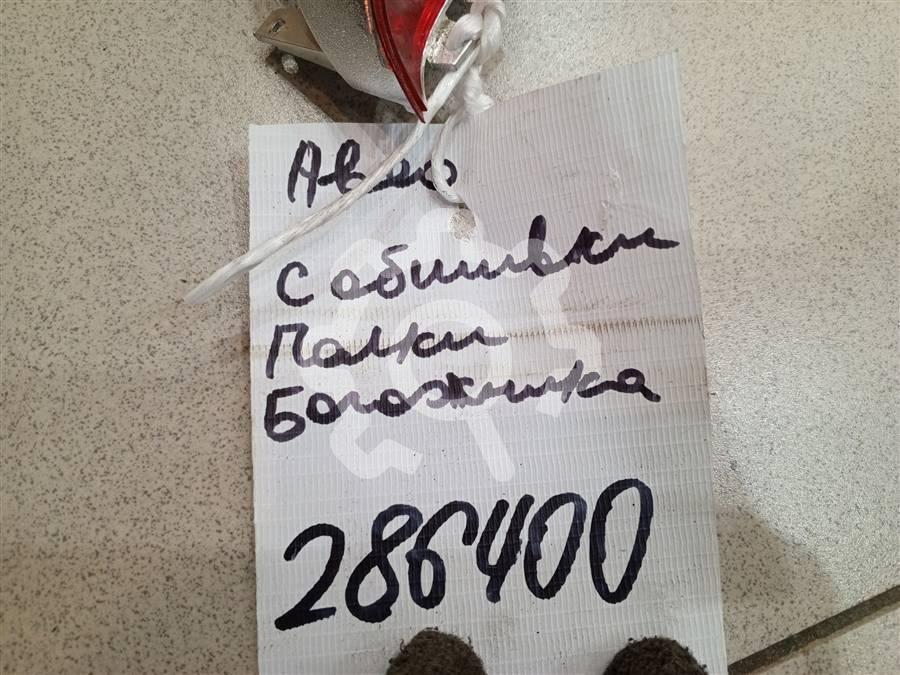 Авео
С обшивки
Полки
Богожника
286400